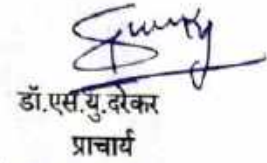 डॉ.एस.यु.दरेकर
प्राचार्य